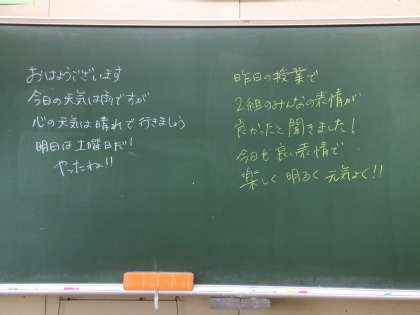 おはようございます
今日の天気は雨ですが
心の天気は晴れで行きましょう
明日は土曜日だ!
やったね!!
昨日の授業で
2組のみんなの表情が
良かったと聞きました!
今日も良い表情で
楽しく明るく元気よく!!